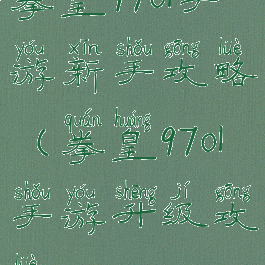 拳皇9701手
yóu xīn shǒu gōng lüè
游新手攻略
quán huáng
(拳皇9701
shǒu yóu shēng jí gōng
手游升级攻
lüè